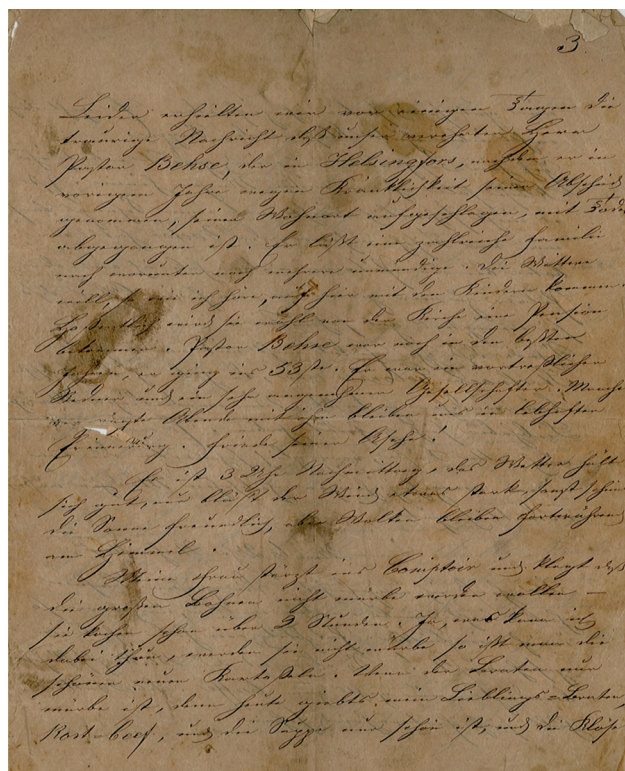 3.
Leider erhielten wir vor einigen Tagen die
traurige Nachricht daß unser verehrter Herr
Pastor Behse, der in Helsingfors, nachdem er im
vorigen Jahre wegen Kränklichkeit seinen Abschied
genommen, seinen Wohnort aufgeschlagen, mit Tode
abgegangen ist. Er läßt eine zahlreiche Familie
nach worunter noch mehrere unmündige. Die Wittwe
will, so wie ich höre, auch hier mit den Kindern kommen.
Hoffentlich wird sie wohl von der Kirche eine Pension
bekommen. Pastor Behse war noch in den besten
Jahren, er ging ins 53ste. Er war ein vortrefflicher
Redner und ein sehr angenehmer Gesellschafter. Manche
vergnügte Abende mit ihm bleiben uns in lebhafter
Erinnerung. Friede seiner Asche!
Es ist 3 Uhr Nachmittag, das Wetter hält
sich gut, nur bläst der Wind etwas stark, sonst scheint
die Sonne freundlich, aber Wolken bleiben fortwährend
am Himmel.
Meine Frau stürzt ins Comptoir und klagt daß
die großen Bohnen nicht mürbe werden wollen —
sie kochen schon über 2 Stunden. Ja, was kann ich
dabei thun, werden sie nicht mürbe so ißt man die
schönen neuen Kartoffeln. Wenn der Braten nur
mürbe ist, denn heute giebts mein Lieblings-Braten,
Rost-beef, und die Suppe nur schön ist, und die Klöße